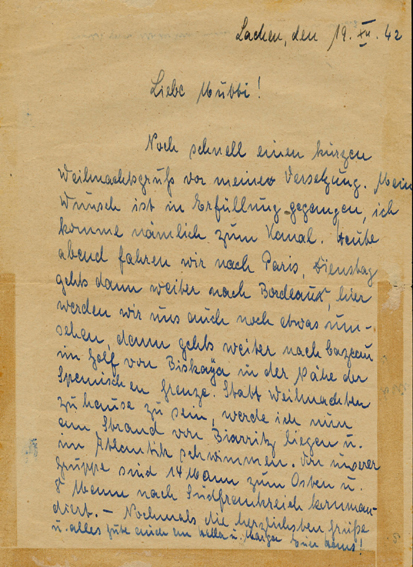 Lachen, den 19. XII. 42
Liebe Mutti!
Noch schnell einen kurzen
Weihnachtsgruß vor meiner Versetzung. Mein
Wunsch ist in Erfüllung gegangen, ich
komme nämlich zum Kanal. Heute
abend fahren wir nach Paris, Dienstag
gehts dann weiter nach Bordeaux, hier
werden wir uns auch noch etwas um-
sehen, dann gehts weiter nach
im Golf von Biskaya in der Nähe der
Spanischen Grenze. Statt Weihnachten
zu hause zu sein, werde ich nun
am Strand von Biarritz liegen u.
im Atlantik schwimmen. Von unserer
Gruppe sind 14 Mann zum Osten u.
8 Mann nach Südfrankreich komman-
diert. – Nochmals die herzlichsten Grüße
u. alles gute auch an u. Dein Hans!